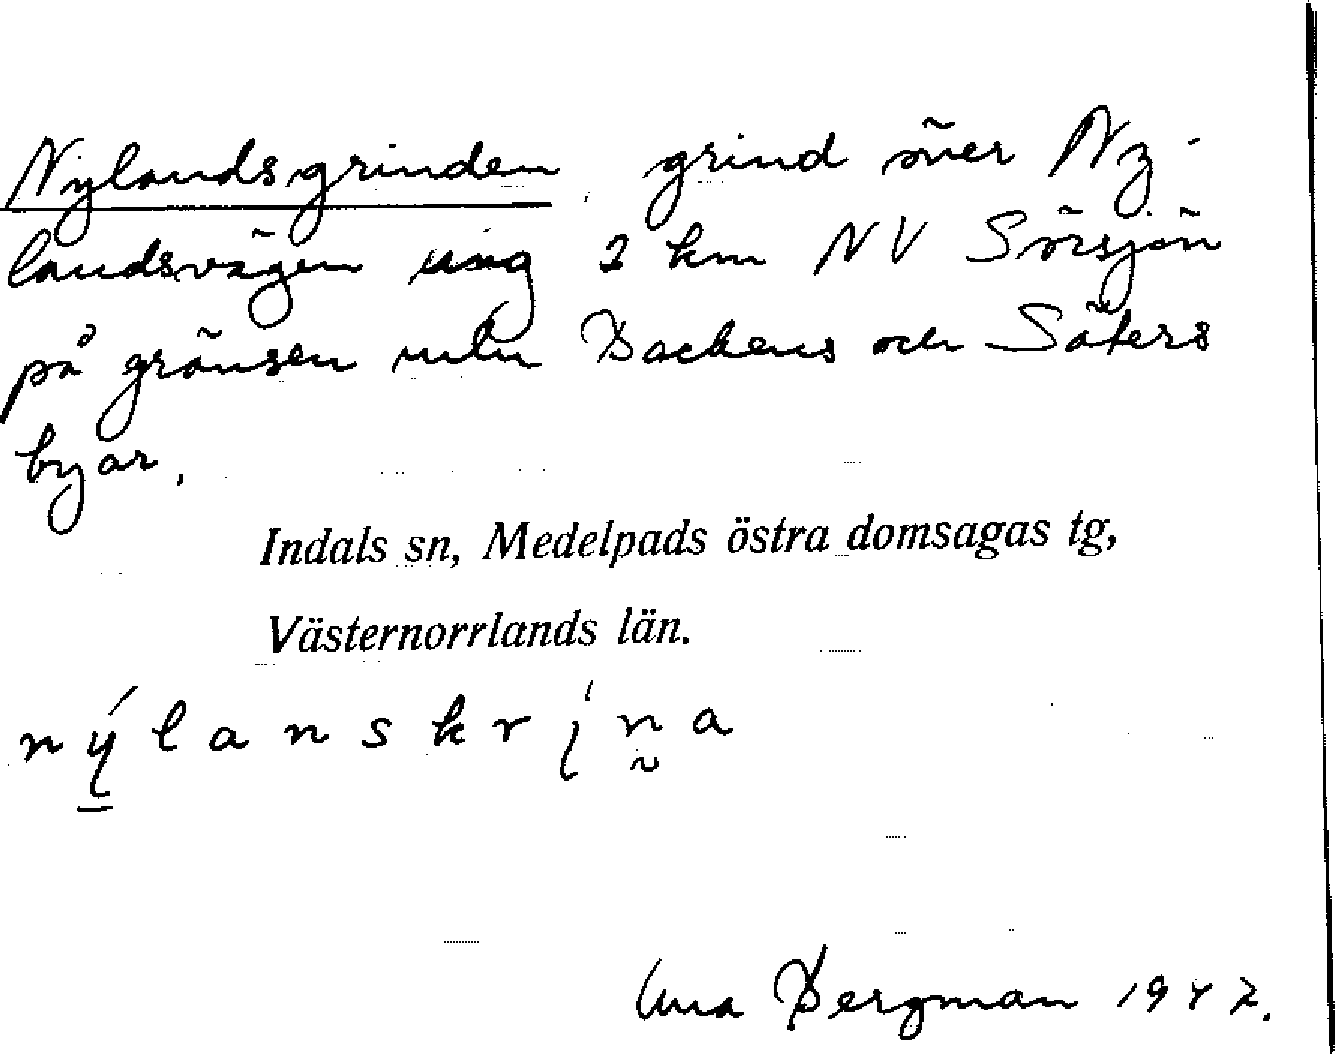 Nylandsgrinden, grind över Ny-
landsvägen ung 2 km NV Sörsjön
på gränsen mln Backens och Säters
byar.
Indals sn, Medelpads östra domsagas tg,
Västernorrlands län.
nýlanskrina
Bergman 1942.